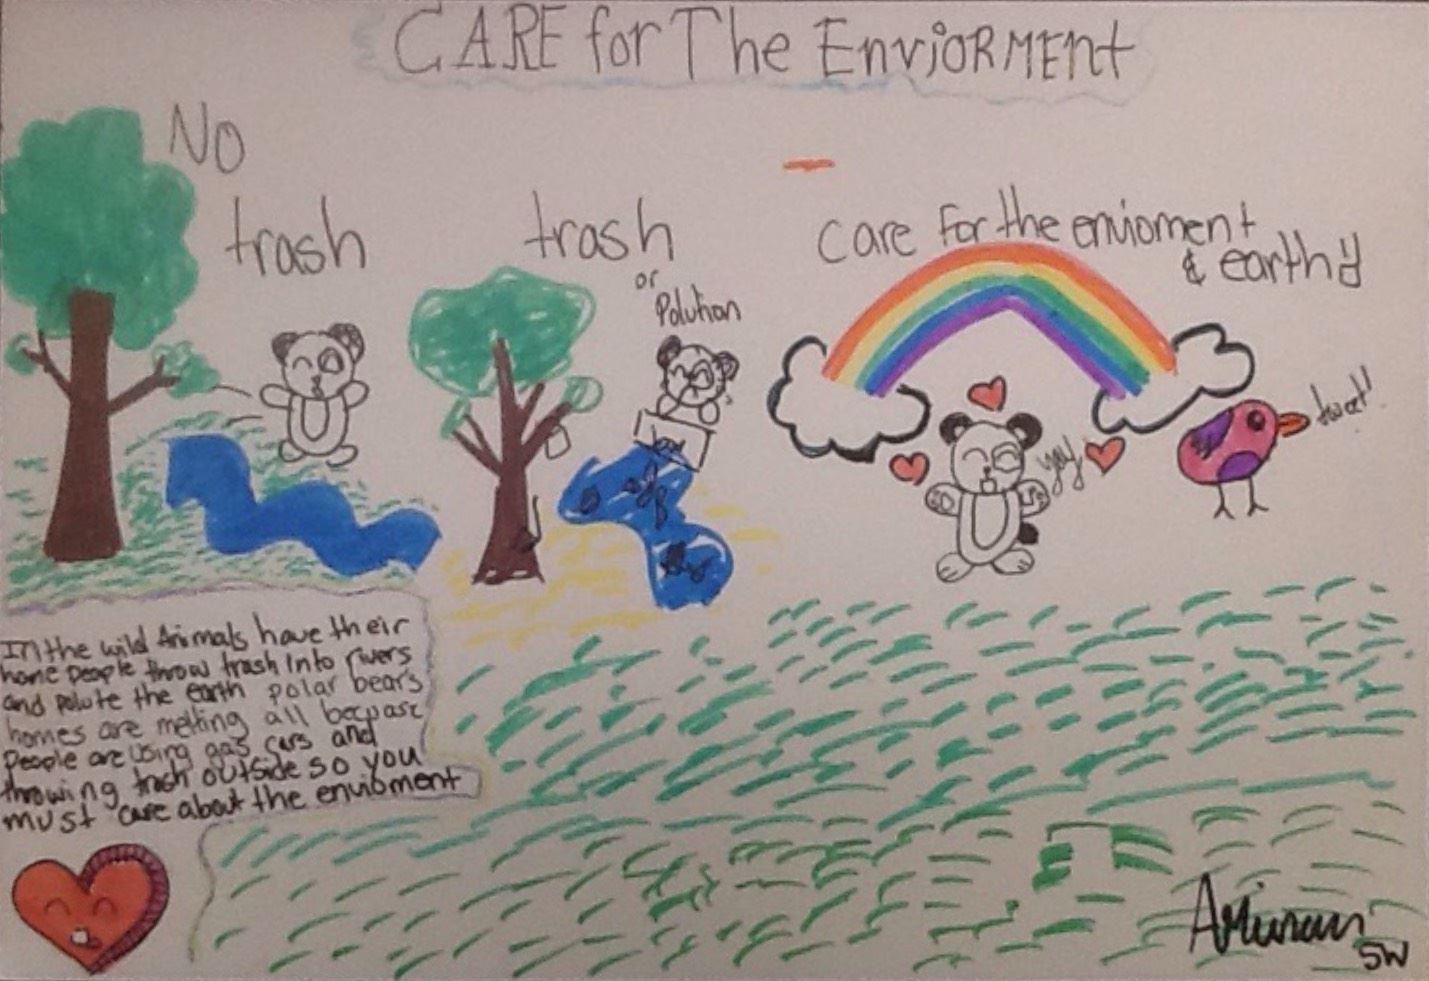 CARE for The EnvjorMEnt
No
trash
trash
or
Polution
Care for the envioment
& earth
yay
tweet!
In the wild Animals have their
home people throw trash into rivers
and polute the earth polar bears
homes are melting all because
People are using gas cars and
throwing trash outside so you
must care about the envioment
5W